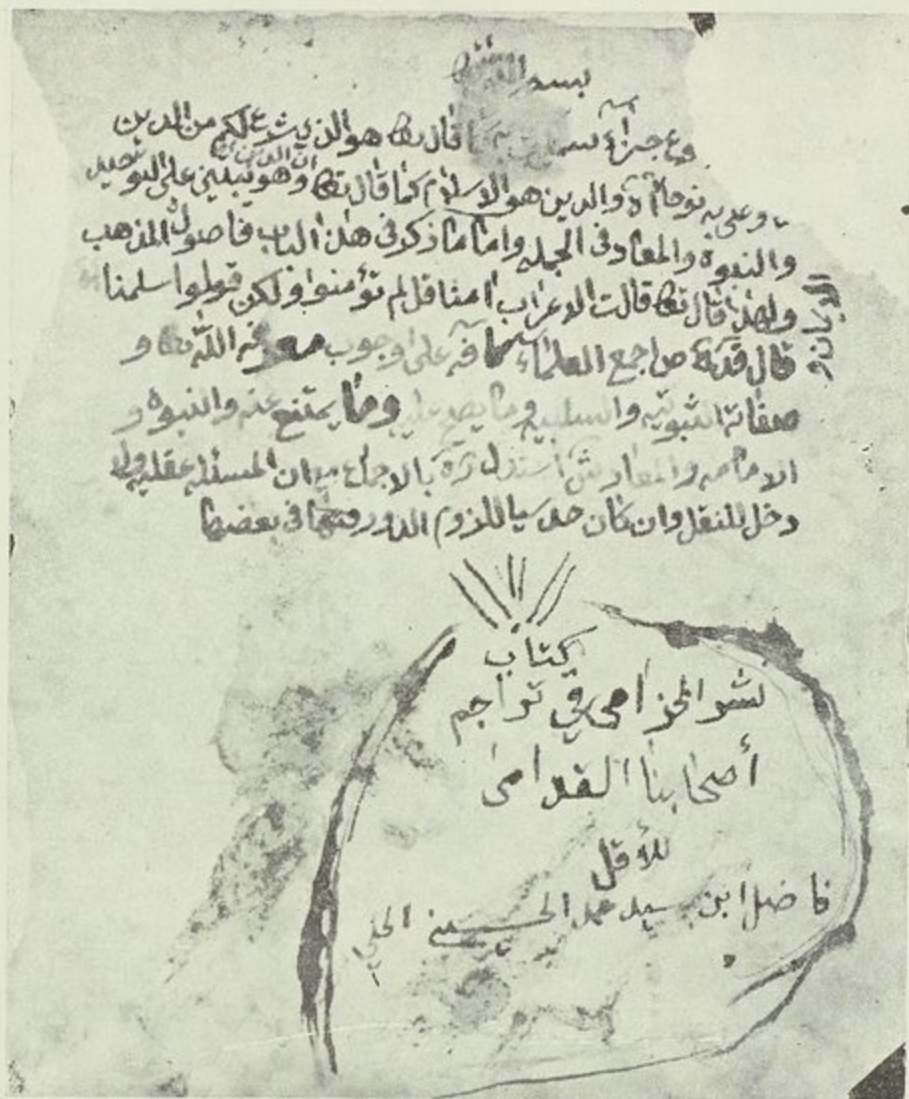 بسم الله
قال تعا هو الذي شرع لكم من الدين
والدين هو الاسلام كما قال تعا ان الدين وهو يبتني على التوحيد
والنبوة والمعاد في الجملة واما ما ذكر في هذا الباب فاصول المذهب
ولهذا قال تعا قالت الاعراب امنا قل لم تؤمنوا ولكن قولوا اسلمنا
الايمان و
قال قده ص اجمع العلماء كافة على وجوب معرفة الله تعا و
صفاته الثبوتيه والسلبيه وما يصح عليه وما يمتنع عنه والنبوة و
الامامه والمعاد ش استدل بالاجماع المسئله عقليه
دخل للنقل وان كان حدسيا للزوم الدور في بعضها
كتاب
نشر الخزامى في تراجم
أصحابنا القدامى
للأقل
فاضل ابن سيد الحسيني الحلي